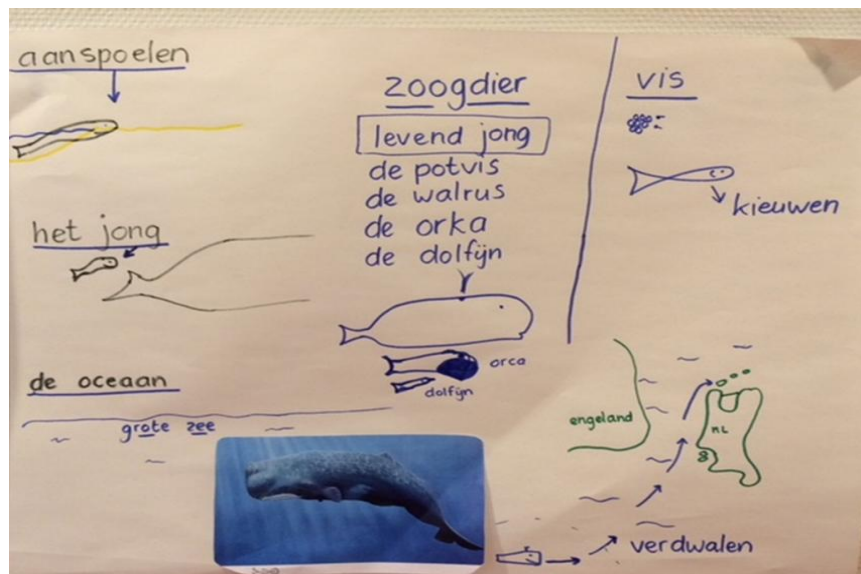 aanspoelen
het jong
de oceaan
grote zee
zoogdier
levend jong
de potvis
de walrus
de orka
de dolfijn
orca
dolfijn
vis
kieuwen
engeland
NL
verdwalen